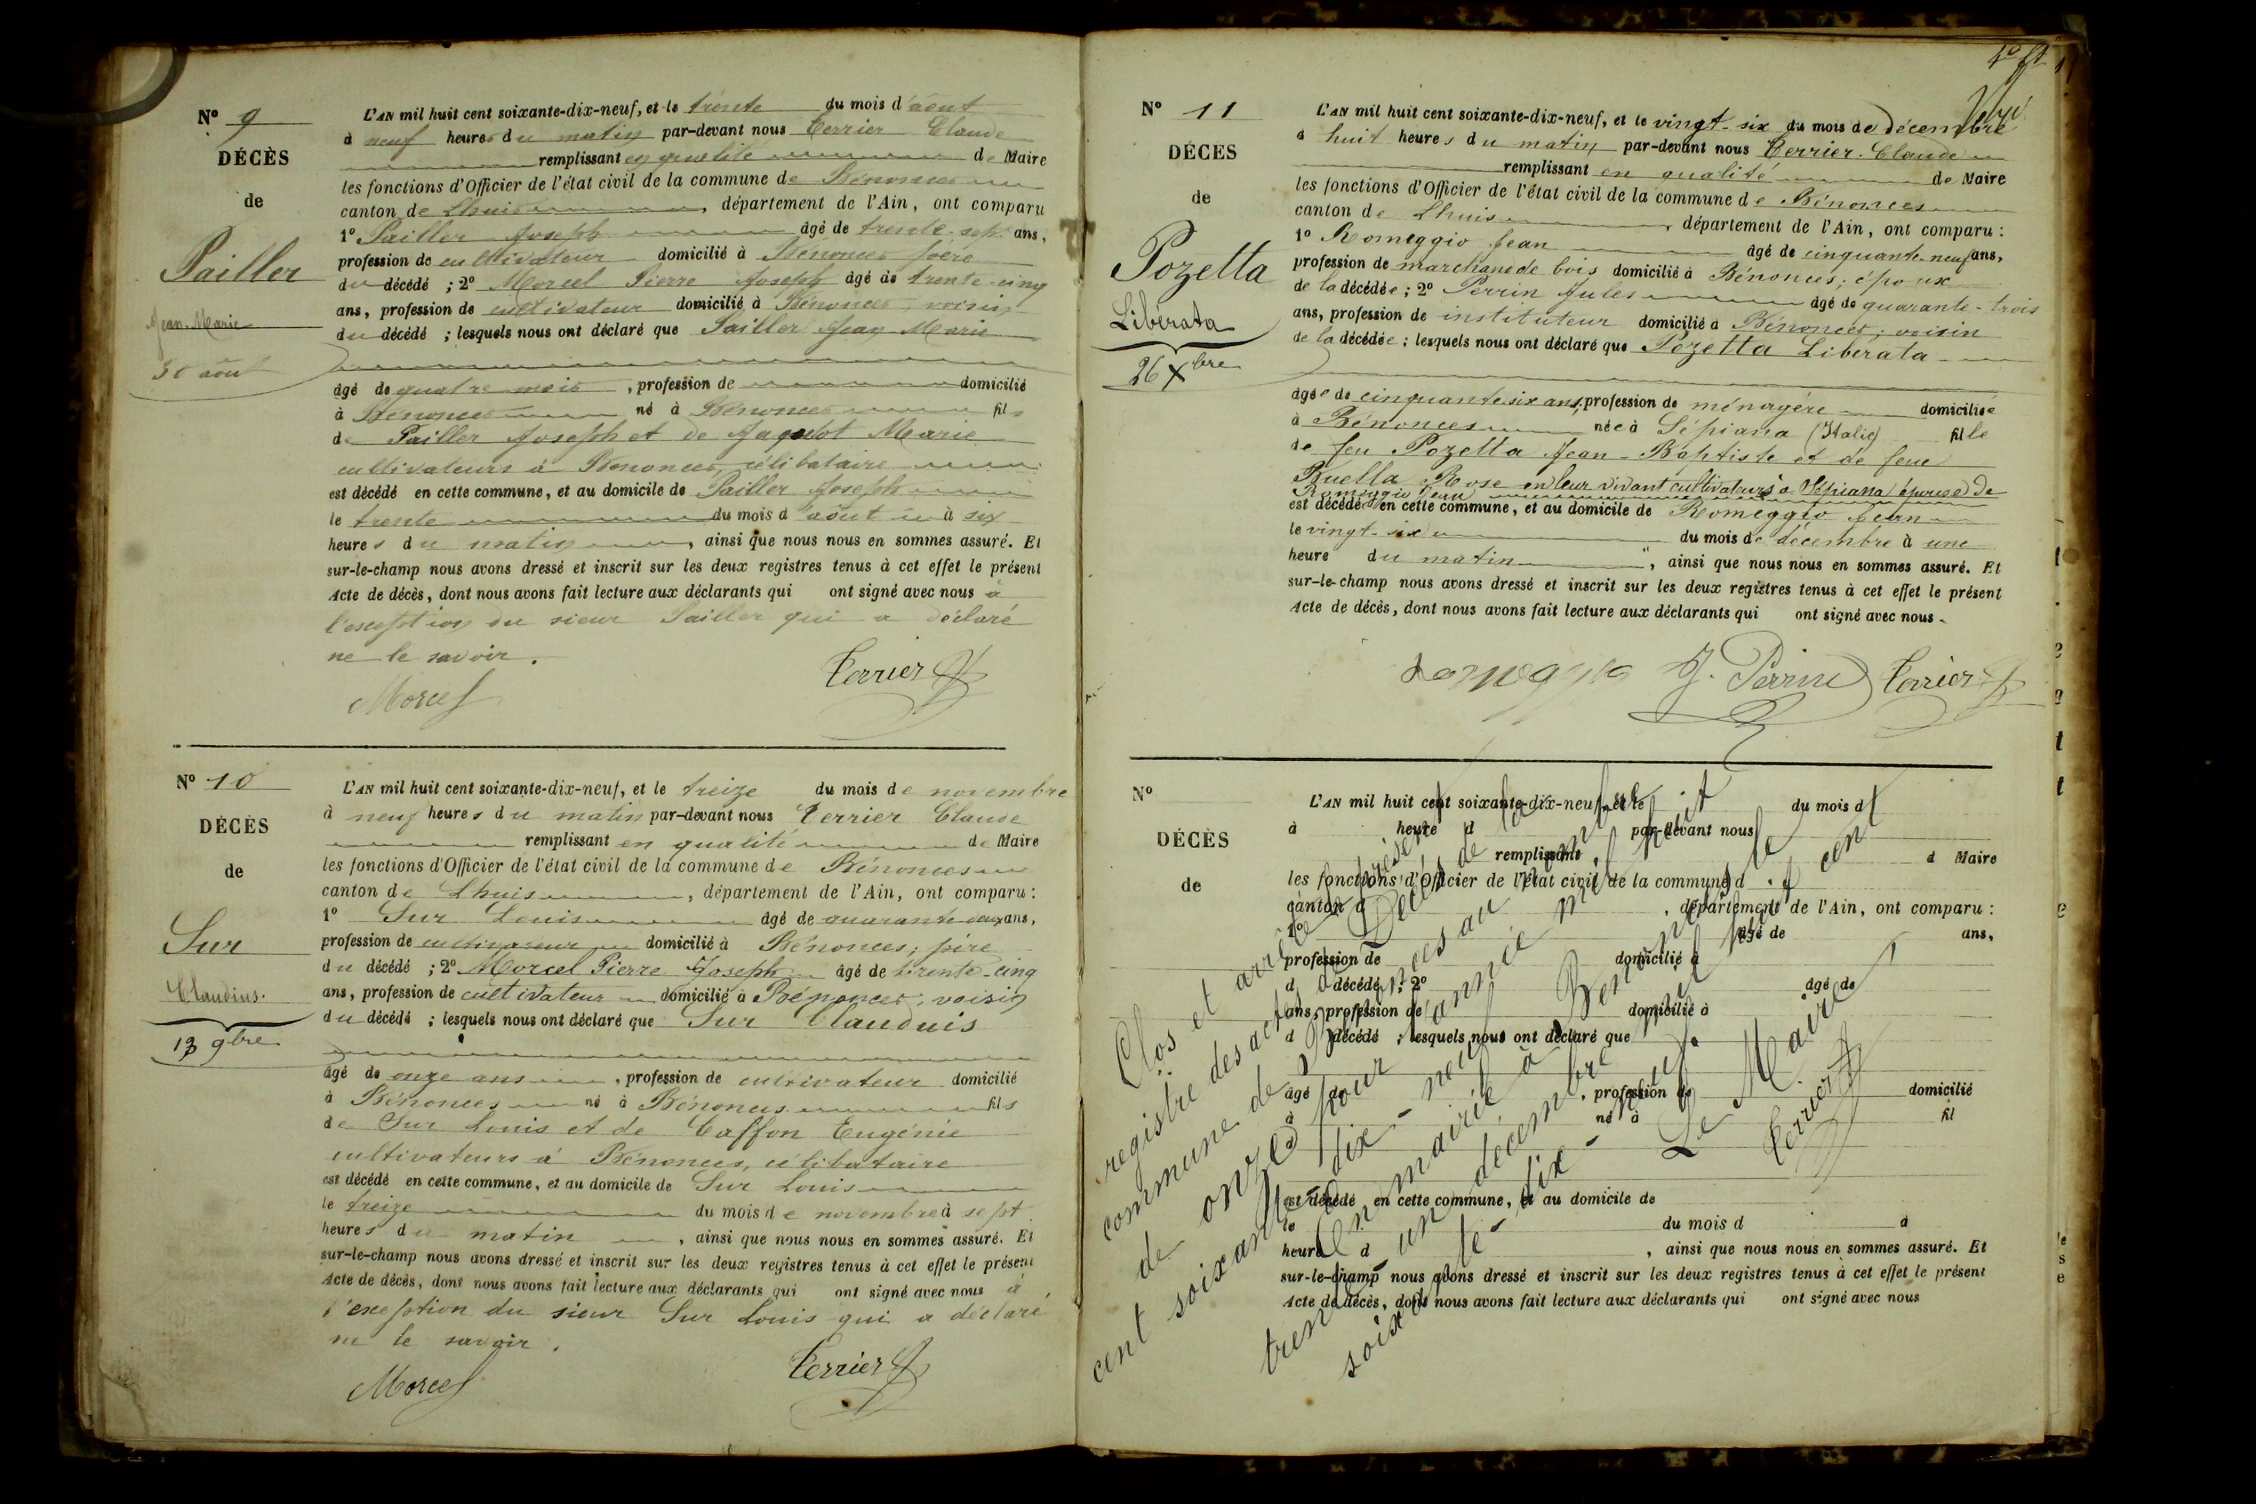 Nº 9
DÉCÈS
de
Pailler
Jean-Marie
30 août
L'AN mil huit cent soixante-dix-neuf, et le trente du mois d'août
à neuf heures du matin par-devant nous Terrier Claude
remplissant en qualité de Maire
les fonctions d'Officier de l'état civil de la commune de Bénonces
canton de Lhuis, département de l'Ain, ont comparu
1º Pailler Joseph âgé de trente-sept ans,
profession de cultivateur domicilié à Bénonces père
du décédé ; 2º Morcel Pierre Joseph âgé de trente-cinq
ans, profession de cultivateur domicilié à Bénonces voisin
du décédé ; lesquels nous ont déclaré que Pailler Jean Marie
âgé de quatre mois, profession de domicilié
à Bénonces né à Bénonces fils
de Pailler Joseph et de Marie
cultivateurs à Bénonces, célibataire
est décédé en cette commune, et au domicile de Pailler Joseph
le trente du mois d'août à six
heures du matin, ainsi que nous nous en sommes assuré. Et
sur-le-champ nous avons dressé et inscrit sur les deux registres tenus à cet effet le présent
Acte de décès, dont nous avons fait lecture aux déclarants qui ont signé avec nous à
l'exception du sieur Pailler qui a déclaré
ne le savoir.
Morcel Terrier
Nº 10
DÉCÈS
de
Sur
Claudius.
13 9bre
L'AN mil huit cent soixante-dix-neuf, et le treize du mois de novembre
à neuf heures du matin par-devant nous Terrier Claude
remplissant en qualité de Maire
les fonctions d'Officier de l'état civil de la commune de Bénonces
canton de Lhuis, département de l'Ain, ont comparu :
1º Sur Louis âgé de quarante-deux ans,
profession de cultivateur domicilié à Bénonces, père
du décédé ; 2º Morcel Pierre Joseph âgé de trente-cinq
ans, profession de cultivateur domicilié à Bénonces, voisin
du décédé ; lesquels nous ont déclaré que Sur Claudius
âgé de onze ans, profession de cultivateur domicilié
à Bénonces né à Bénonces fils
de Sur Louis et de Caffon Eugénie
cultivateurs à Bénonces, célibataire
est décédé en cette commune, et au domicile de Sur Louis
le treize du mois de novembre à sept
heures du matin, ainsi que nous nous en sommes assuré. Et
sur-le-champ nous avons dressé et inscrit sur les deux registres tenus à cet effet le présent
Acte de décès, dont nous avons fait lecture aux déclarants qui ont signé avec nous à
l'exception du sieur Sur Louis qui a déclaré
ne le savoir.
Morcel Terrier
Nº 11
DÉCES
de
Pozetta
Libérata
26 Xbre
L'AN mil huit cent soixante-dix-neuf, et le vingt-six du mois de décembre
à huit heures du matin par-devant nous Terrier Claude
remplissant en qualité de Maire
les fonctions d'Officier de l'état civil de la commune de Bénonces
canton de Lhuis, département de l'Ain, ont comparu :
1º Romeggio Jean âgé de cinquante-neuf ans,
profession de marchand de bois domicilié à Bénonces ; époux
de la décédée ; 2º Perrin Jules âgé de quarante-trois
ans, profession de instituteur domicilié à Bénonces, voisin
de la décédée ; lesquels nous ont déclaré que Pozetta Libérata
âgée de cinquante-six ans, profession de ménagère domiciliée
à Bénonces née à Sépiana (Italie) fille
de feu Pozetta Jean-Baptiste et de feue
Ruella Rose en leur vivant cultivateurs à Sépiana, épouse de
Romeggio Jean
est décédée en cette commune, et au domicile de Romeggio Jean
le vingt-six du mois de décembre à une
heure du matin, ainsi que nous nous en sommes assuré. Et
sur-le-champ nous avons dressé et inscrit sur les deux registres tenus à cet effet le présent
Acte de décès, dont nous avons fait lecture aux déclarants qui ont signé avec nous.
Romeggio J. Perrin Terrier
Nº
DÉCÈS
de
L'AN mil huit cent soixante-dix-neuf, et le du mois d
à heure d par-devant nous
remplissant d Maire
les fonctions d'Officier de l'état civil de la commune d
canton d, département de l'Ain, ont comparu :
1º âgé de ans,
profession de domicilié à
d décédé ; 2º âgé de
ans, profession de domicilié à
d décédé ; lesquels nous ont déclaré que
âgé de, profession de domicilié
à né à fil
est décédé en cette commune, et au domicile de
le du mois d à
heure d, ainsi que nous nous en sommes assuré. Et
sur-le-champ nous avons dressé et inscrit sur les deux registres tenus à cet effet le présent
Acte de décès, dont nous avons fait lecture aux déclarants qui ont signé avec nous
Clos et arrêté le présent
registre des actes de Décès de la
commune de Bénonces au nombre
de onze pour l'année mil huit
cent soixante-dix-neuf.
En mairie à Bénonces le
trente-un décembre mil huit cent
soixante-dix-neuf.
Le Maire
Terrier